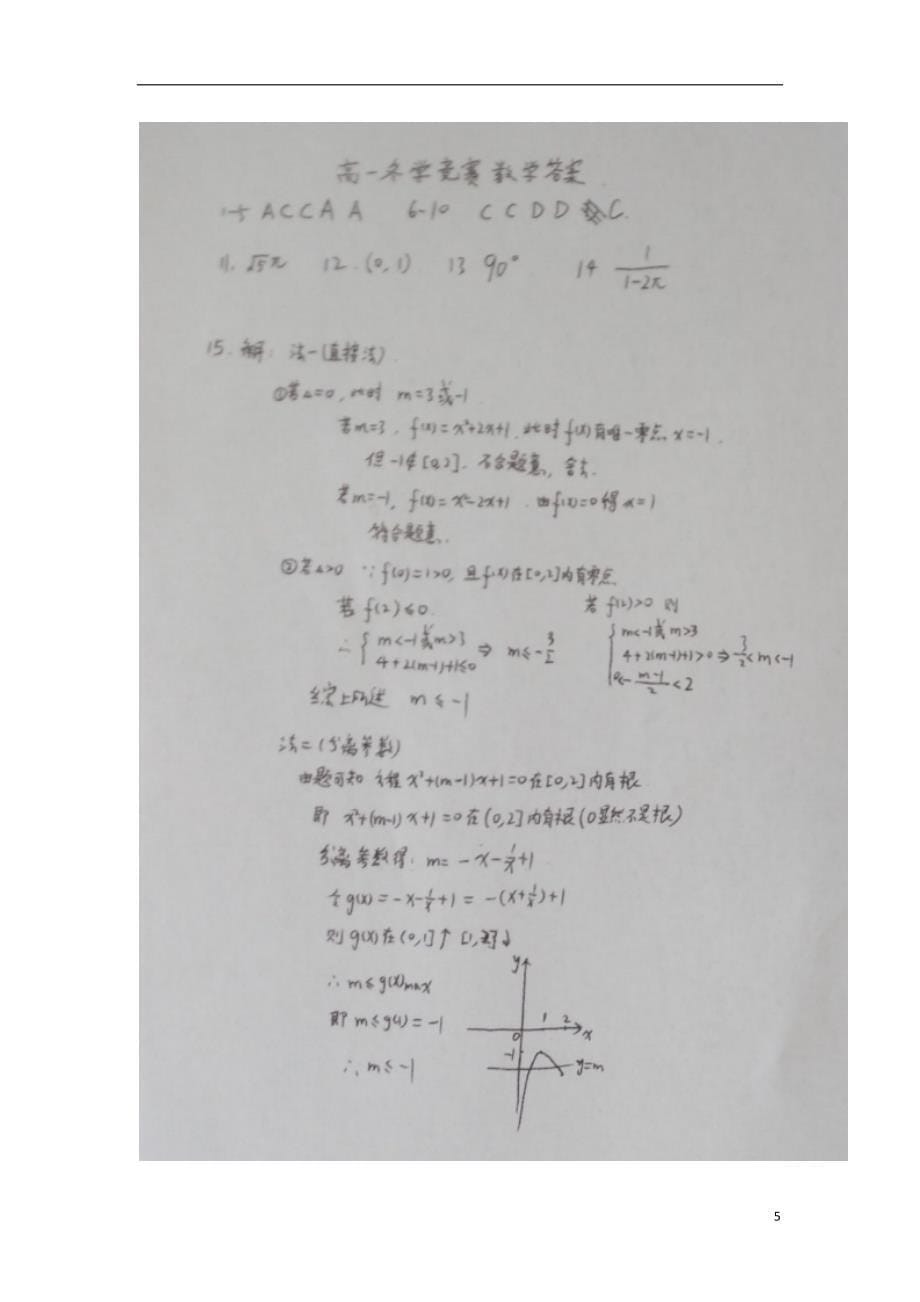 高一冬学竞赛数学答案
1-5 ACCAA 6-10 CCDD C.
11. √5π 12. (0,1) 13 90° 14 1/(1-2π)
15. 解: 法一(直接法)
①若△=0, 此时 m=3或-1
若m=3, f(x)=x²+2x+1, 此时f(x)有唯一零点 x=-1.
但 -1∉[0,2]. 不合题意, 舍去.
若m=-1, f(x)=x²-2x+1. 由f(x)=0得 x=1
符合题意.
②若△>0 ∵f(0)=1>0, 且f(x)在[0,2]内有零点
若 f(2)≤0. 若 f(2)>0 则
∴ { m<-1或m>3 4+2(m-1)+1≤0 ⇒ m≤-3/2 { m<-1或m>3 4+2(m-1)+1>0 0<-(m-1)/2<2 ⇒ -3/2<m<-1
综上所述 m≤-1
法二(分离参数)
由题可知 方程 x²+(m-1)x+1=0在[0,2]内有根
即 x²+(m-1)x+1=0在(0,2]内有根(0显然不是根)
分离参数得: m=-x-1/x+1
令g(x)=-x-1/x+1=-(x+1/x)+1
则g(x)在(0,1]↑ [1,2]↓
∴m≤g(x)max
即m≤g(1)=-1
∴m≤-1
y
0 1 2 x
-1
y=m
5